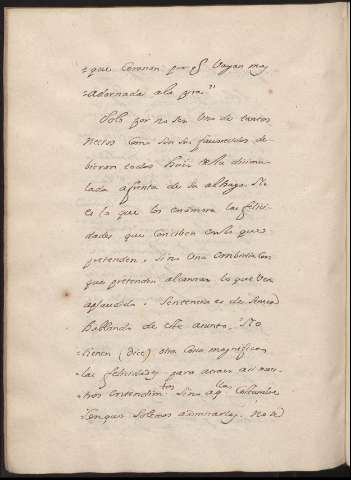 que Coronan por q̃ Vayan mas
Adornada a la
Solo por no ser Uno de tantos
Necios como son sus favorecidos de-
bieran todos huir de la disimu-
lada afrenta de su alhago. No
es lo que los enamora las felici-
dades que conciben en lo que
pretenden, sino Una Con
que pretenden alcanzar lo que Ven
aplaudido. Sentencia es de Seneca
hablando de este asunto. No
tienen (dice) otra Cosa magnifica
las felicidades para atraer a si nues-
tros entendim.tos sino aq.lla Costumbre
Con que solemos admirarlas. No se